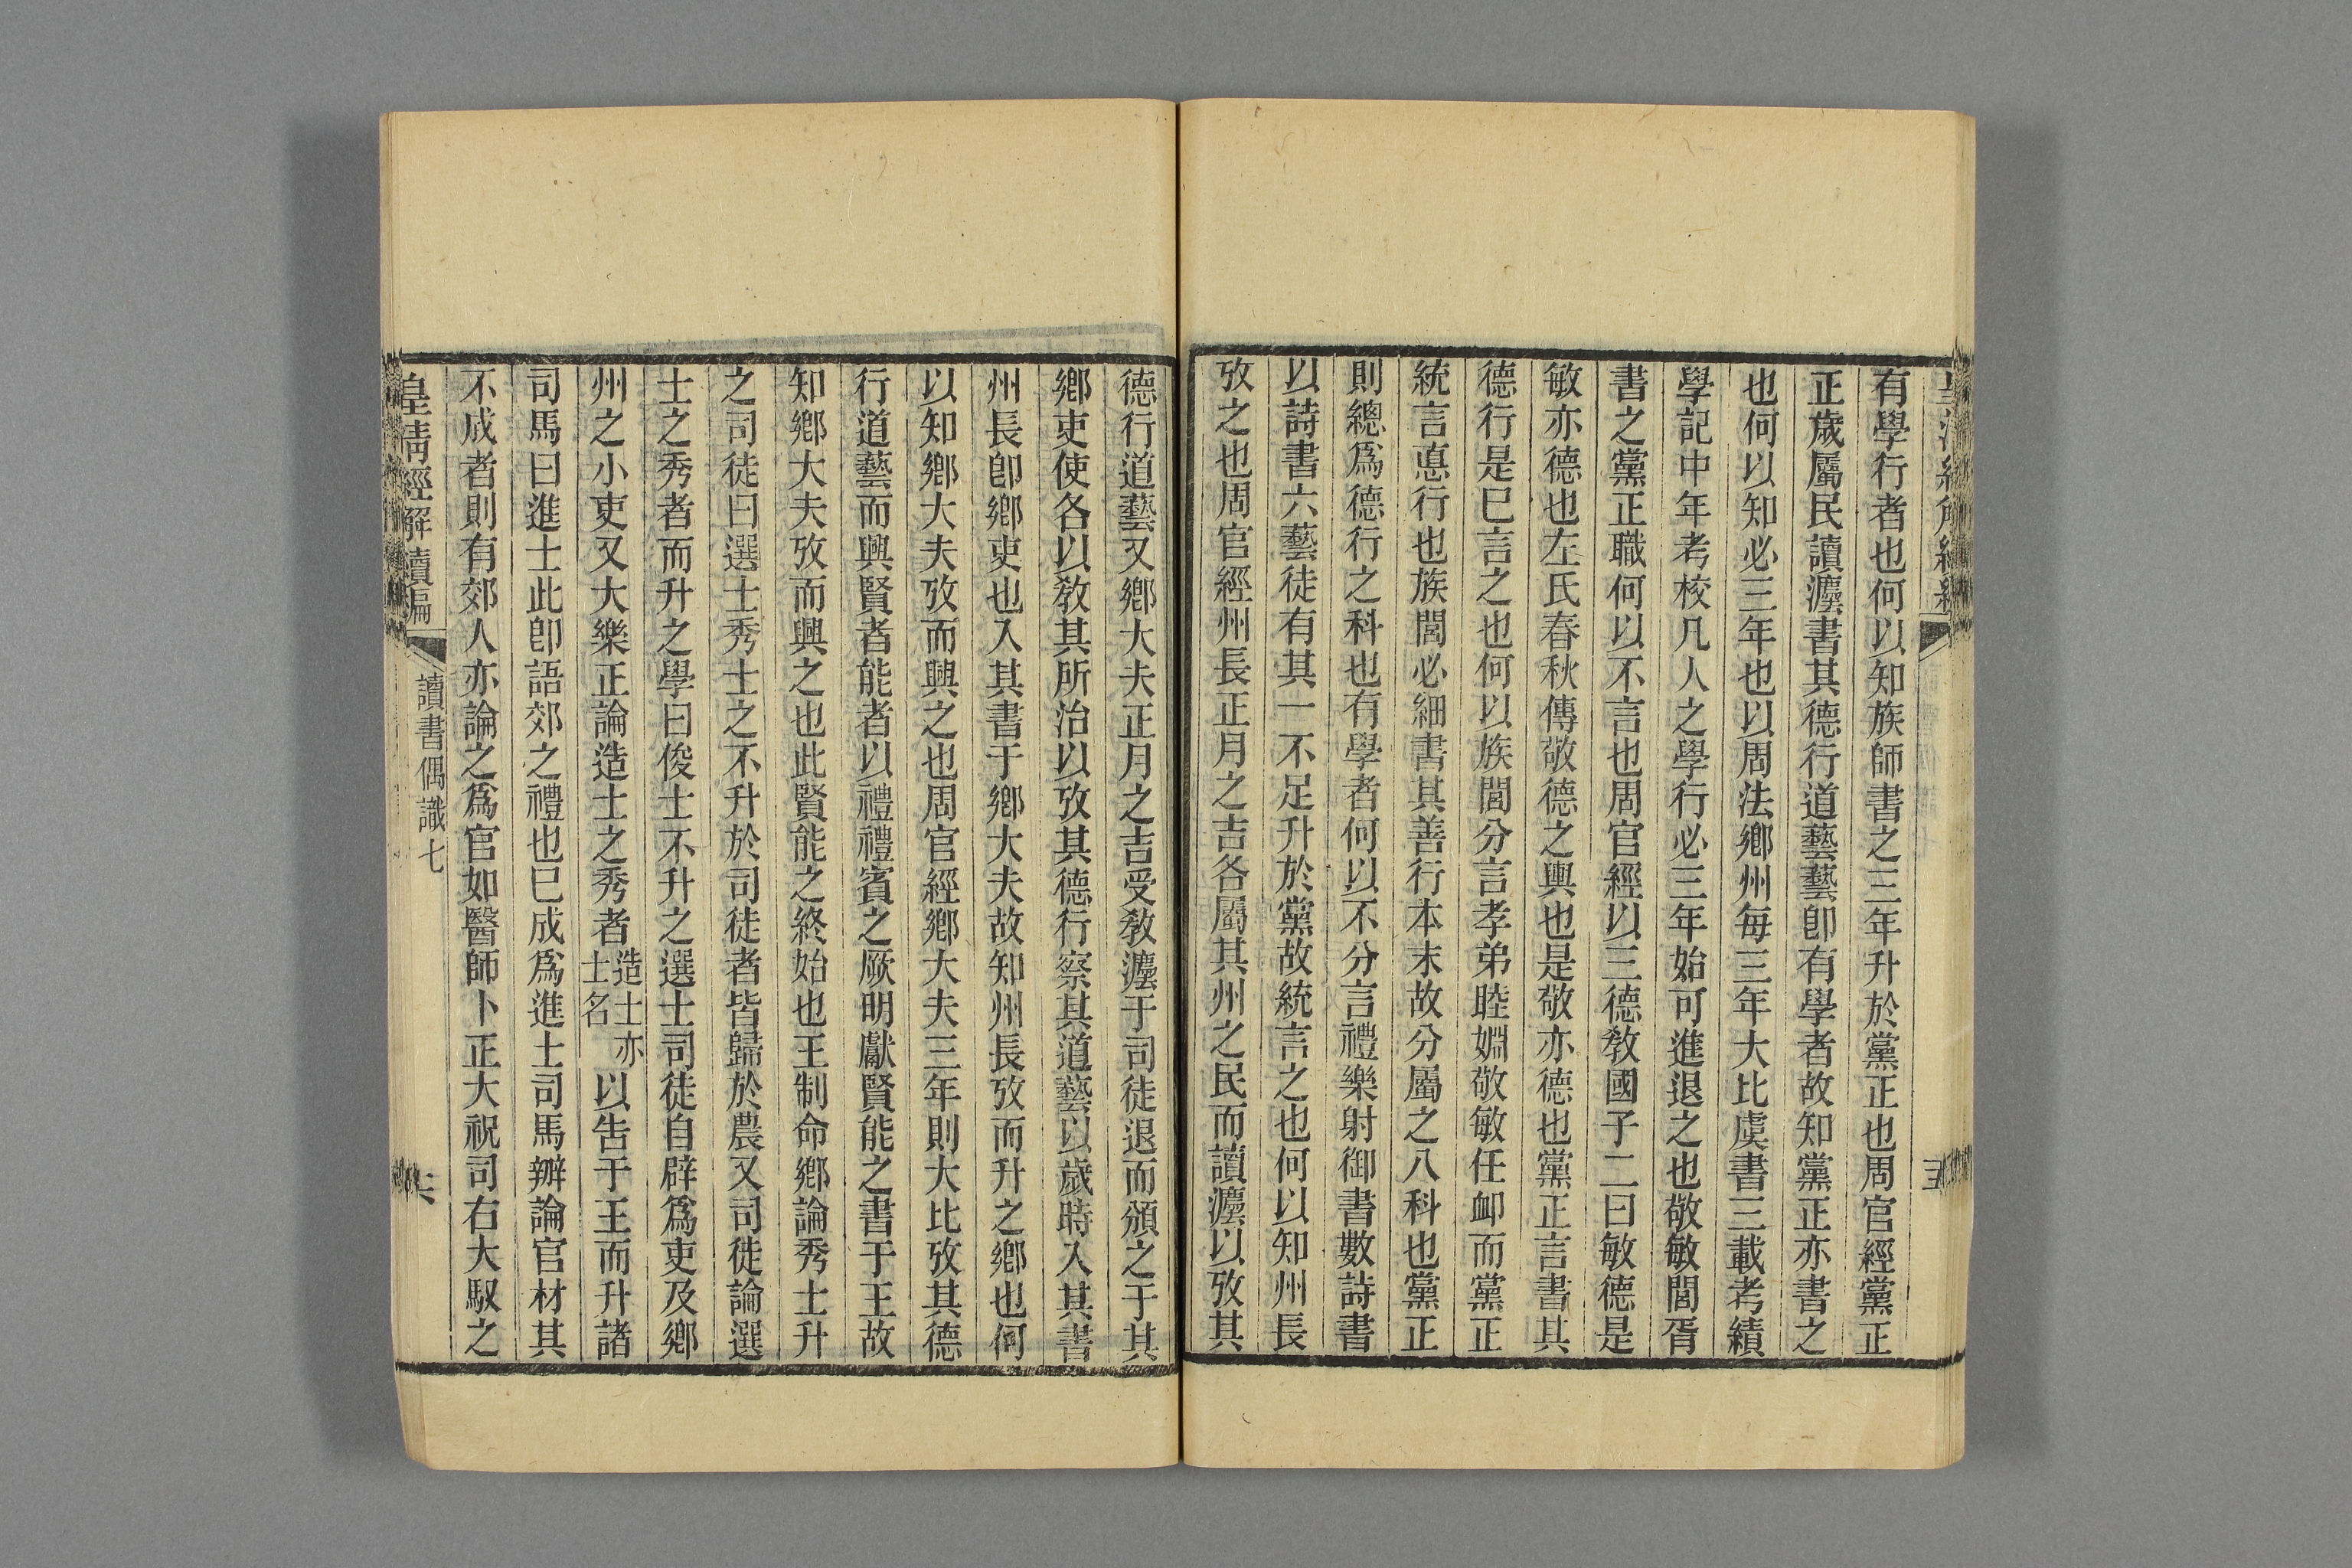 有學行者也何以知族師書之三年升於黨正也周官經黨正
正歲屬民讀灋書其德行道藝藝卽有學者故知黨正亦書之
也何以知必三年也以周法鄕州每三年大比虞書三載考績
學記中年考校凡人之學行必三年始可進退之也敬敏閭胥
書之黨正職何以不言也周官經以三德敎國子二曰敏德是
敏亦德也左氏春秋傳敬德之輿也是敬亦德也黨正言書其
德行是巳言之也何以族閭分言孝弟睦婣敬敏任卹而黨正
統言悳行也族閭必細書其善行本末故分屬之八科也黨正
則總爲德行之科也有學者何以不分言禮樂射御書數詩書
以詩書六藝徒有其一不足升於黨故統言之也何以知州長
攷之也周官經州長正月之吉各屬其州之民而讀灋以攷其
德行道藝又鄕大夫正月之吉受敎灋于司徒退而頒之于其
鄕吏使各以敎其所治以攷其德行察其道藝以歲時入其書
州長卽鄕吏也入其書于鄕大夫故知州長攷而升之鄕也何
以知鄕大夫攷而興之也周官經鄕大夫三年則大比攷其德
行道藝而興賢者能者以禮禮賓之厥明獻賢能之書于王故
知鄕大夫攷而興之也此賢能之終始也王制命鄕論秀士升
之司徒曰選士秀士之不升於司徒者皆歸於農又司徒論選
士之秀者而升之學曰俊士不升之選士司徒自辟爲吏及鄕
州之小吏又大樂正論造士之秀者造士亦士名以告于王而升諸
司馬曰進士此卽語郊之禮也巳成爲進士司馬辨論官材其
不成者則有郊人亦論之爲官如醫師卜正大祝司右大馭之
皇淸經解續編
讀書偶識七
六